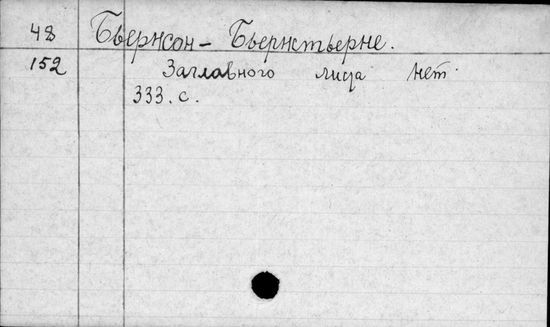 48 Бьернсон - Бьернстьерне.
152 Заглавного листа нет
333. с.